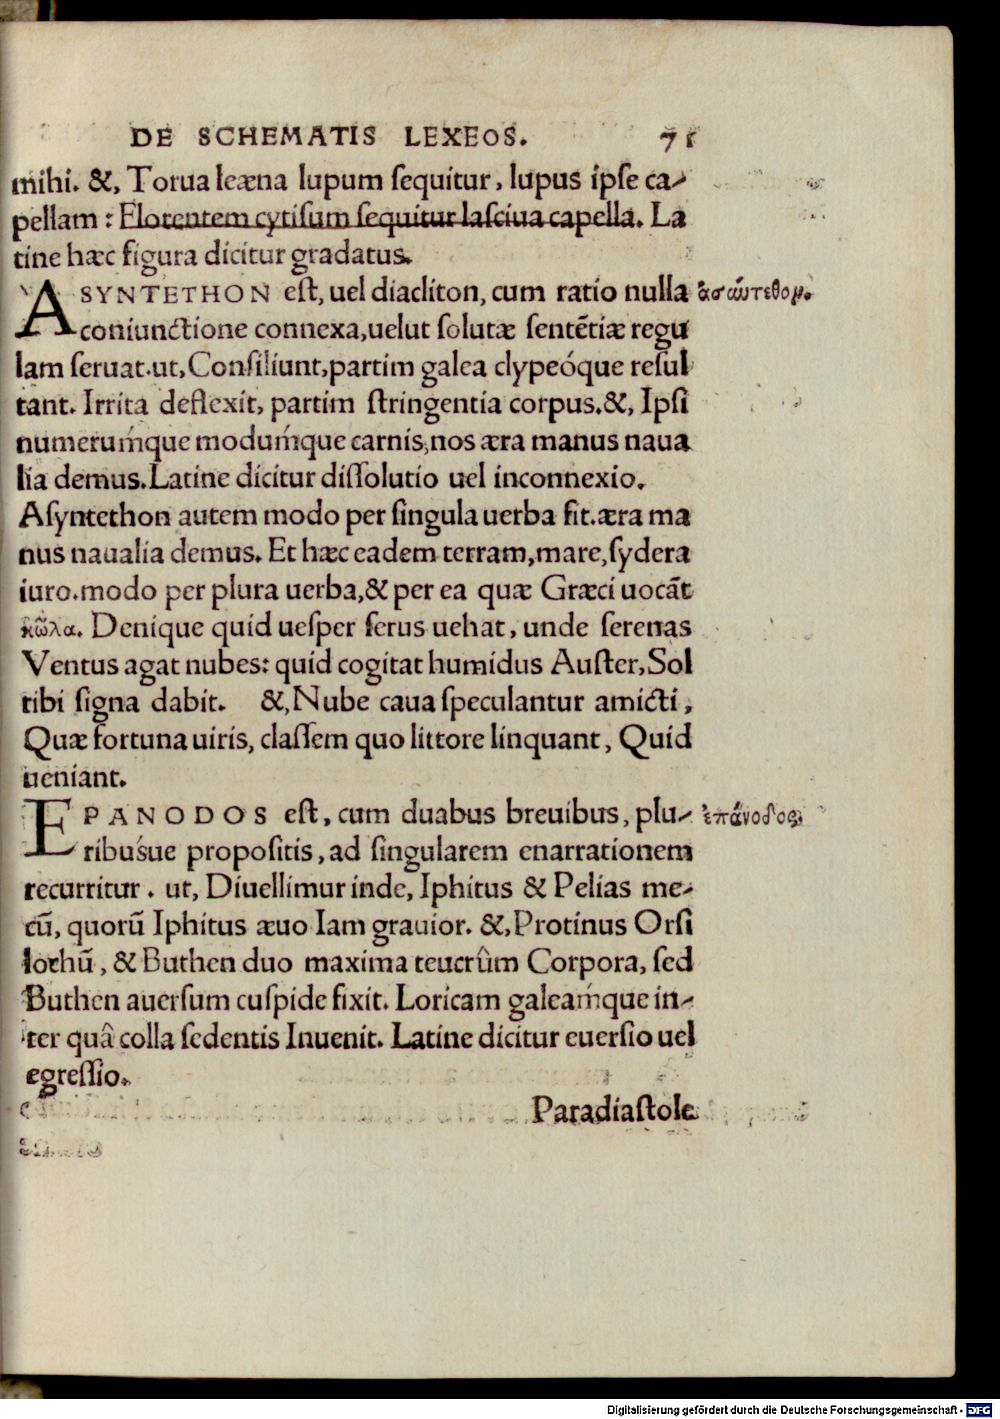 DE SCHEMATIS LEXEOS. 71
mihi. &, Torua leæna lupum ſequitur, lupus ipſe ca-
pellam: Florentem cytiſum ſequitur laſciua capella. La
tine hæc figura dicitur gradatus.
ASYNTETHON eſt, uel diacliton, cum ratio nulla ἀσωύτεθομ.
coniunctione connexa, uelut ſolutæ ſentẽtiæ regu
lam ſeruat. ut, Conſiliunt, partim galea clypeóque reſul
tant. Irrita deflexit, partim ſtringentia corpus. &, Ipſi
numerum'que modum'que carnis, nos æra manus naua
lia demus. Latine dicitur diſſolutio uel inconnexio.
Aſyntethon autem modo per ſingula uerba fit. æra ma
nus naualia demus. Et hæc eadem terram, mare, ſydera
iuro. modo per plura uerba, & per ea quæ Græci uocãt
κῶλα. Denique quid ueſper ſerus uehat, unde ſerenas
Ventus agat nubes: quid cogitat humidus Auſter, Sol
tibi ſigna dabit. &, Nube caua ſpeculantur amicti,
Quæ fortuna uiris, claſſem quo littore linquant, Quid
ueniant.
EPANODOS eſt, cum duabus breuibus, plu- ἐπάνοδος
ribus'ue propoſitis, ad ſingularem enarrationem
recurritur. ut, Diuellimur inde, Iphitus & Pelias me-
cũ, quorũ Iphitus æuo Iam grauior. &, Protinus Orſi
lochũ, & Buthen duo maxima teucrûm Corpora, ſed
Buthen auerſum cuſpide fixit. Loricam galeam'que in-
ter quâ colla ſedentis Inuenit. Latine dicitur euerſio uel
egreſſio.
Paradiaſtole
Digitalisierung gefördert durch die Deutsche Forschungsgemeinschaft - DFG